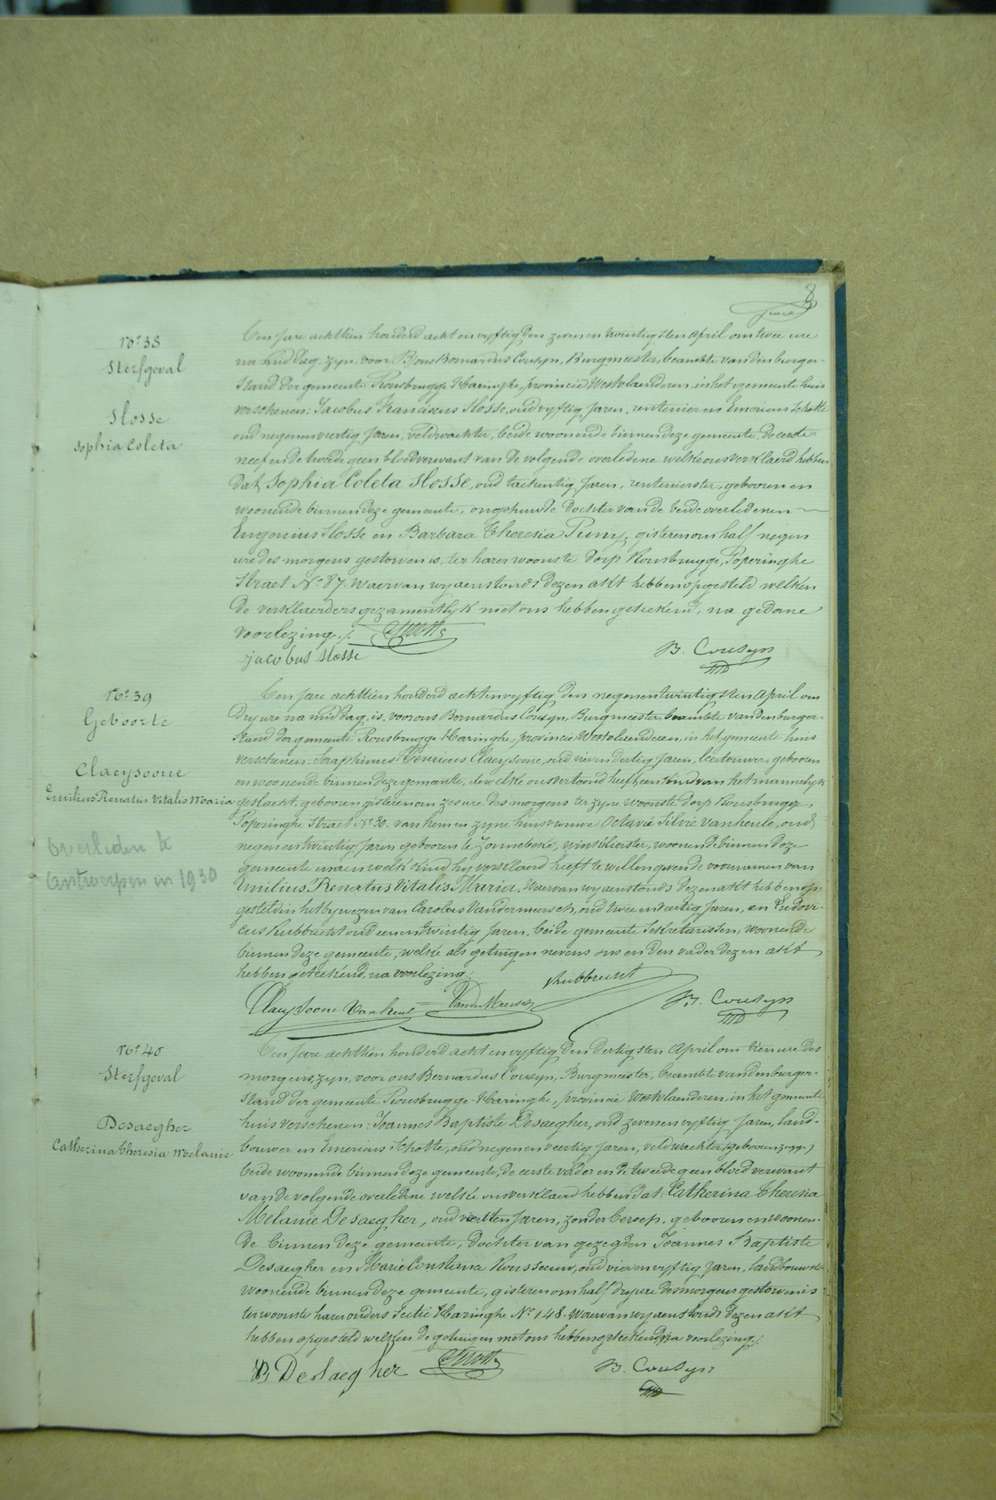 8
No. 38
Sterfgeval
Slosse
Sophia Coleta
Een jare achttien honderd acht en vyftig den zeven en twintigsten April om twee ure
na middag, zyn, voor Bernardus Cousyn, Burgmeester, beambte van den burger-
stand der gemeente Rousbrugge-Haringhe, provincie Westvlaenderen, in het gemeente huis
verschenen: Jacobus Franciscus Slosse, oud vyftig jaren, rentenier en Emerious Schotte
oud negenenveertig jaren, veldwachter, beide woonende binnen deze gemeente, de eerste
neef en de tweede geen bloedverwant van de volgende overledene welke ons verklaerd hebben
dat Sophia Coleta Slosse, oud tachentig jaren, rentenierster, geboren en
woonende binnen deze gemeente, ongehuwde dochter van de beide overledenen
Eugenius Slosse en Barbara Theresia gisteren om half negen
ure des morgens gestorven is, ter harer woonste dorp Rousbrugge, Poperinghe
Straet No. 87. Waervan wy aenstonds dezen akt hebben opgesteld welken
de verklaerders gezamentlyk met ons hebben geteekend, na gedane
voorlezing./.
Jacobus Slosse
B. Cousyn
No. 39
Geboorte
Claeysoone
Emilius Renatus Vitalis Maria
Overleden te
Antwerpen in 1930
Een jare achttien honderd acht en vyftig, den negenentwintigsten April om
dry ure na middag, is, voor ons Bernardus Cousyn, Burgmeester, beambte van den burger-
stand der gemeente Rousbrugge Haringhe, provincie Westvlaenderen, in het gemeente huis
verschenen: Seraphinus Claeysoone, oud en dertig jaren, geboren
en woonende binnen deze gemeente, dewelke ons vertoond heeft, een kind van het mannelyk
geslacht, geboren gisteren om zes ure des morgens ter zyne woonste dorp Rousbrugge,
Poperinghe Straet No. 30. van hem en zyne huisvrouwe Octavie Silvie Vanheule, oud
negen en twintig jaren geboren te Zonnebeke, winkelierster, woonende binnen deze
gemeente en aen welk kind hy verklaerd heeft te willen geven de voornamen van
Emilius Renatus Vitalis Maria. Waervan wy aenstonds dezen akt hebben op-
gesteld in het bywezen van Carolus Vandermeersch, oud twee en veertig jaren, en Ludovi-
cus Rubbrecht oud een en twintig jaren, beide gemeente Sekretarissen, woonende
binnen deze gemeente, welke als getuigen nevens ons en den vader dezen akt
hebben geteekend, na voorlezing./.
Rubbrecht
Claeysoone Vanheule
B. Cousyn
No. 40
Sterfgeval
Desaegher
Catherina Theresia Melanie
Een jare achttien honderd acht en vyftig, den dertigsten April om tien ure des
morgens, zyn, voor ons Bernardus Cousyn, Burgmeester, beambte van den burger-
stand der gemeente Rousbrugge-Haringhe, provincie Westvlaenderen, in het gemeente
huis verschenen: Joannes Baptiste Desaegher, oud zeven en vyftig jaren, land-
bouwer en Emerious Schotte, oud negen en veertig jaren, veldwachter,
beide woonende binnen deze gemeente, de eerste vader en de tweede geen bloedverwant
van de volgende overledene welke ons verklaerd hebben dat Catherina Theresia
Melanie Desaegher, oud veertien jaren, zonder beroep, geboren en woonen-
de binnen deze gemeente, dochter van gezegden Joannes Baptiste
Desaegher en Marie Rousseeuw, oud vier en vyftig jaren, landbouwster
woonende binnen deze gemeente, gisteren om half dry ure des morgens gestorven is
ter woonste harer ouders Sectie Haringhe No. 148. Waervan wy aenstonds dezen akt
hebben opgesteld welken de getuigen met ons hebben geteekend, na voorlezing./.
JB Desaegher
B. Cousyn